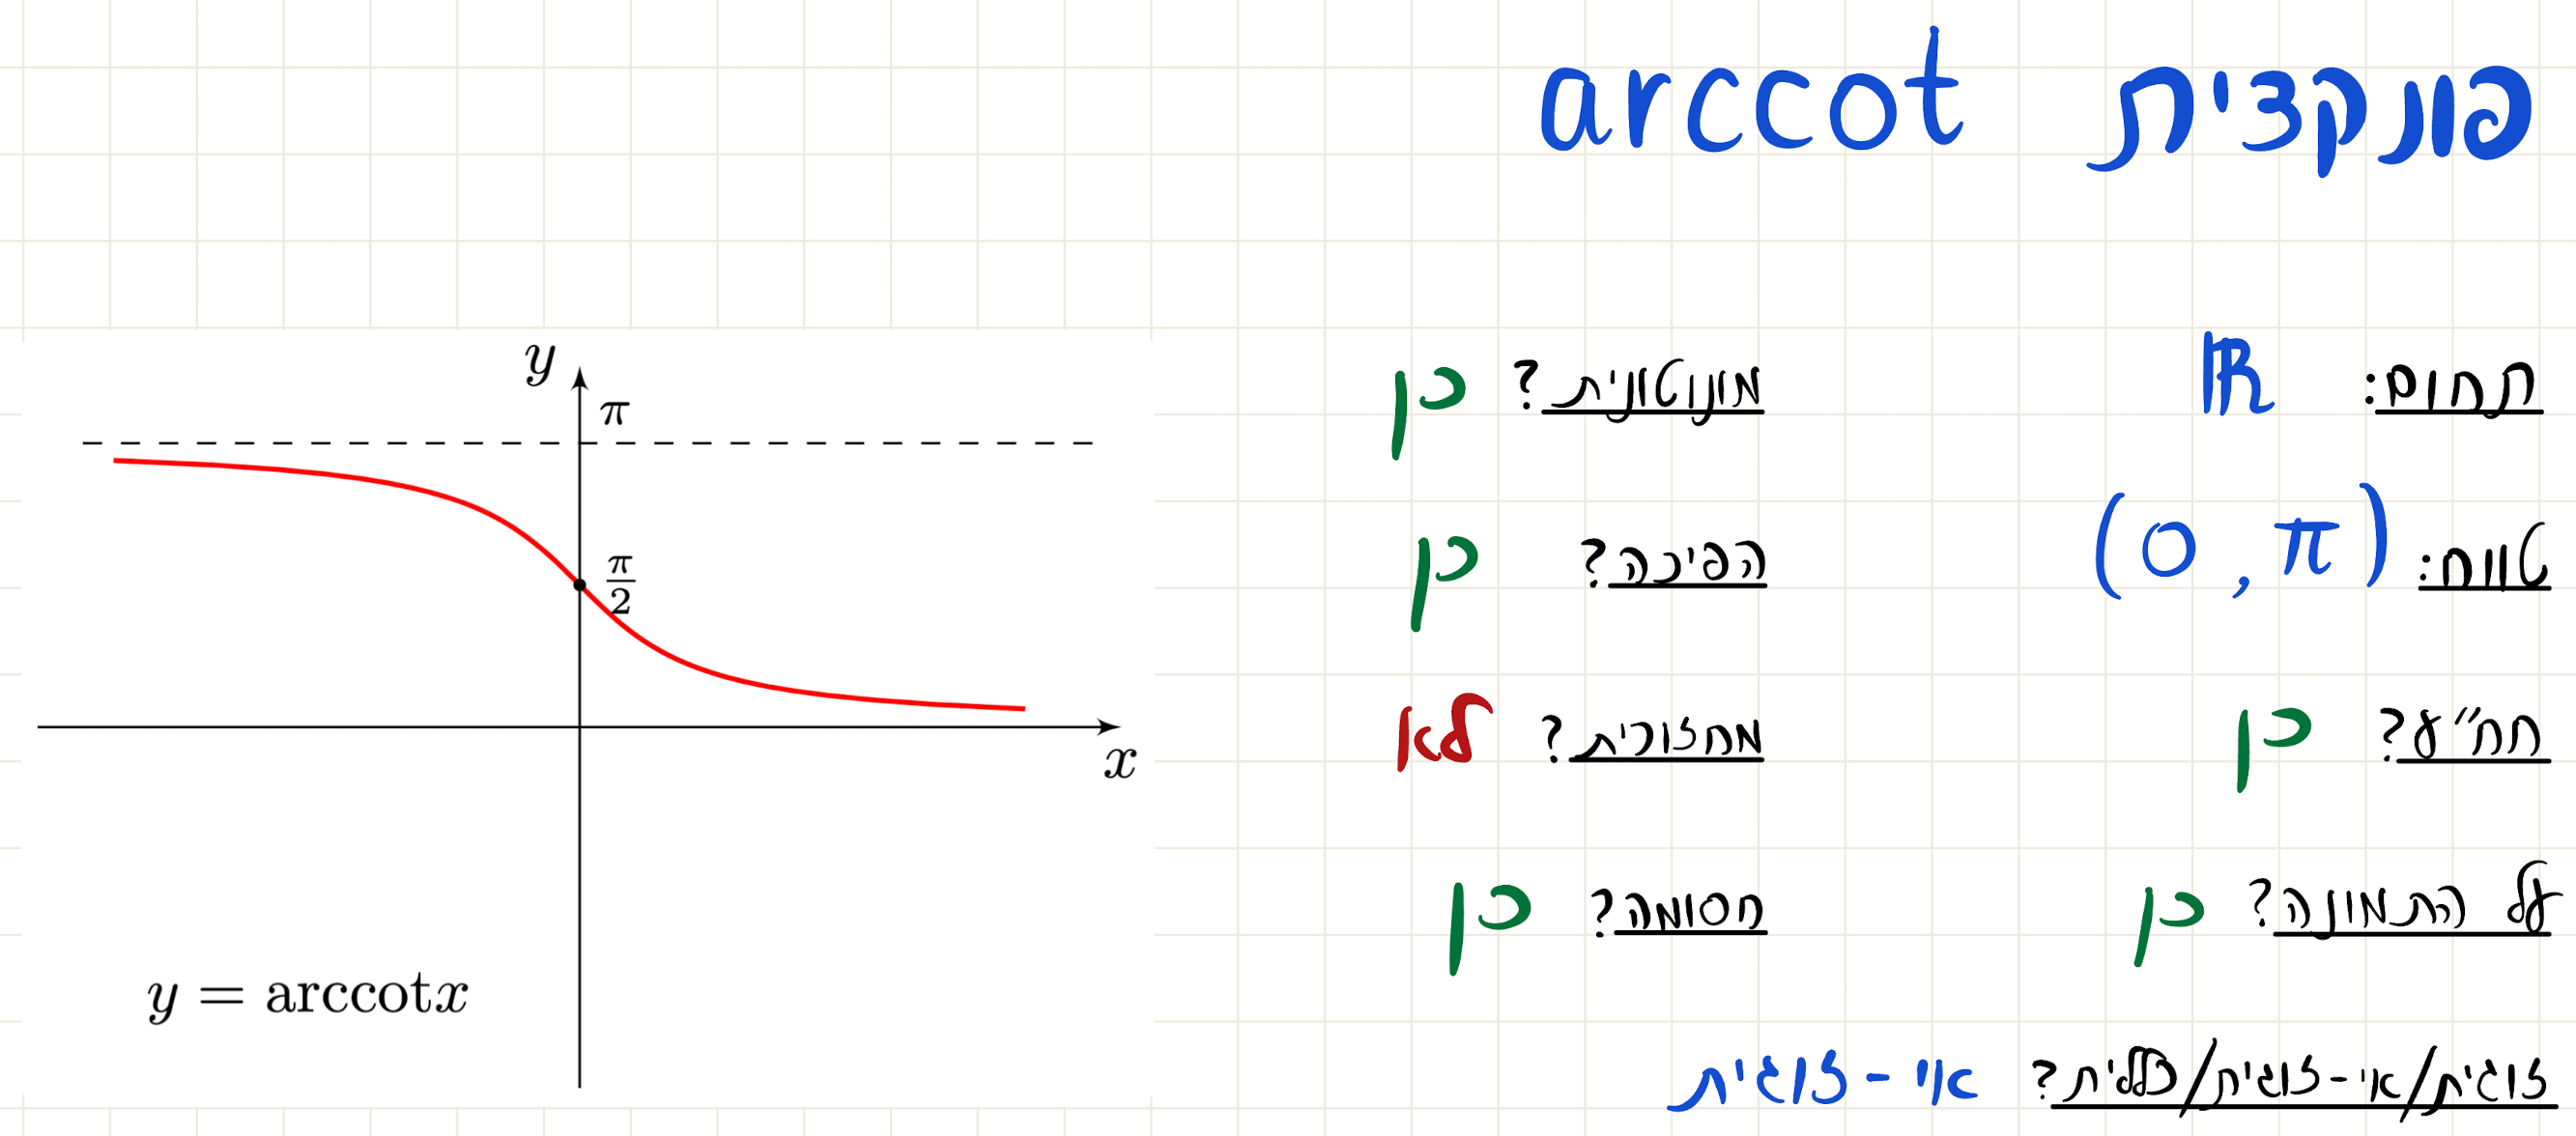 פונקצית arccot
תחום: ℝ
טווח: (0, π)
חח"ע? כן
על התמונה? כן
זוגית/אי-זוגית/כללית? אי-זוגית
מונוטונית? כן
הפיכה? כן
מחזורית? לא
חסומה? כן
y
π
π/2
x
y = arccotx